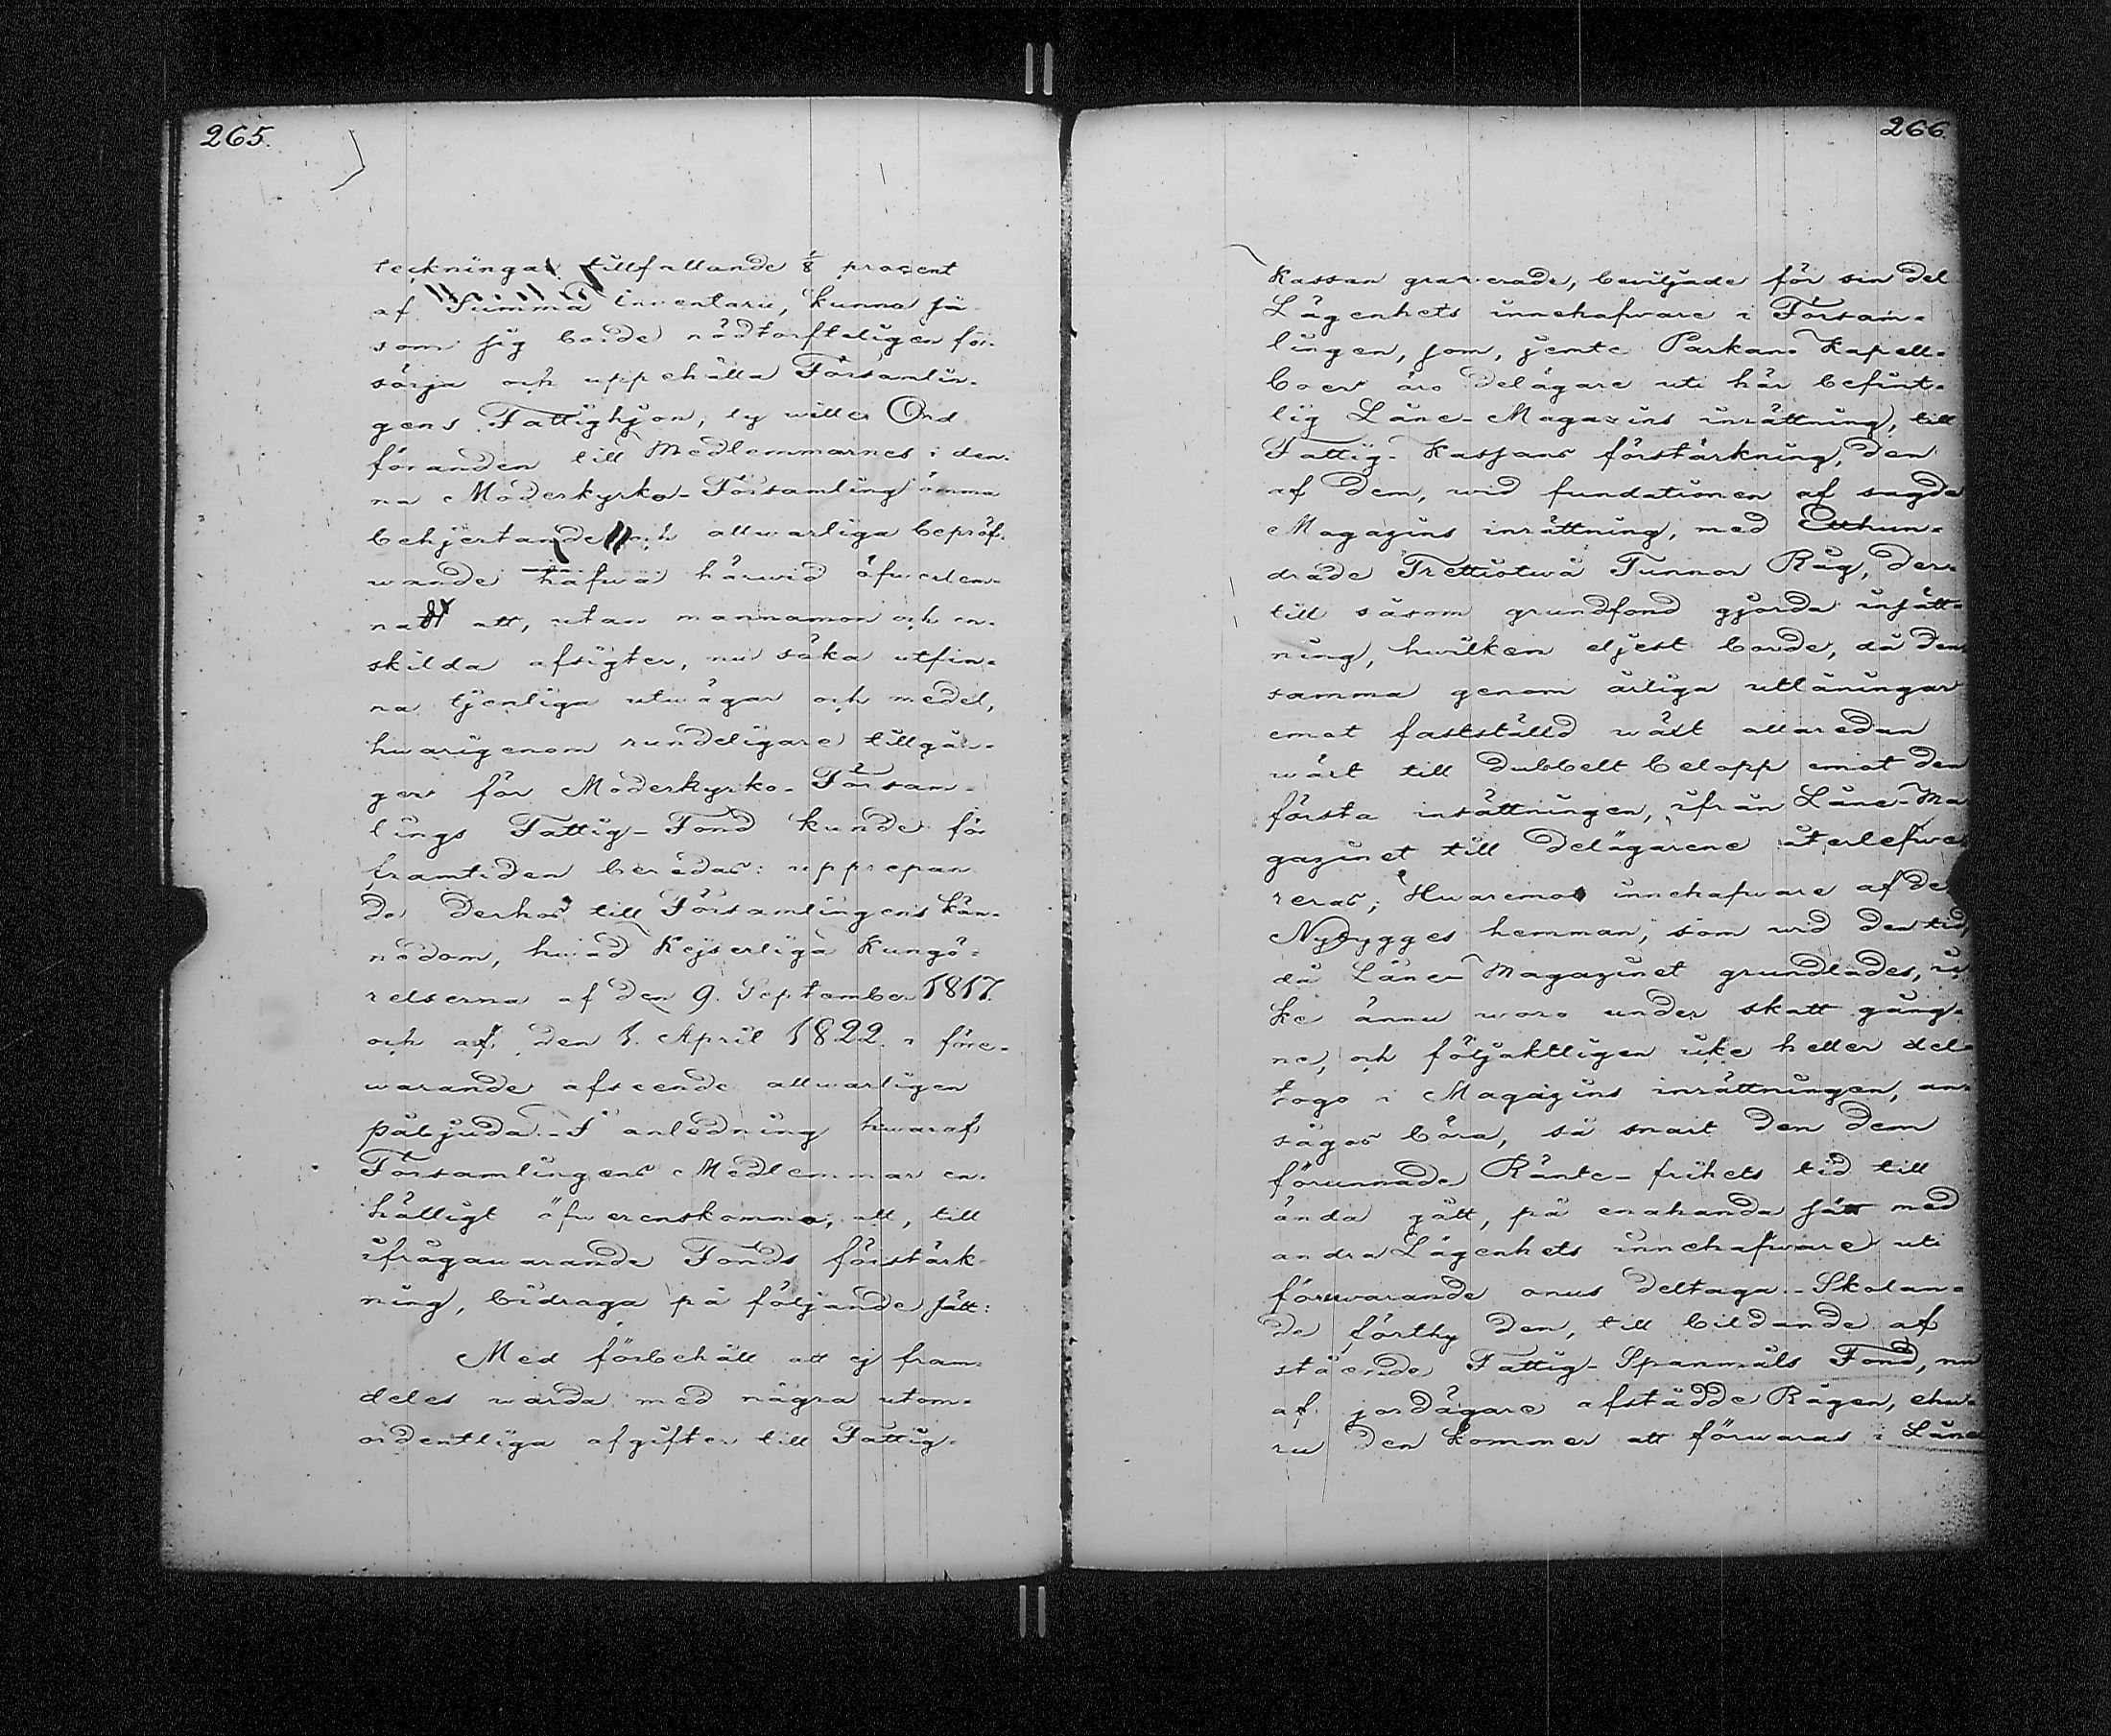 265.
teckningar tillfallande 1/8 procent
af Summa inventarii, kunna så-
som sig borde nödtorfteligen för-
sörja och uppehålla Församlin-
gens Fattighjon, ty wille Ord
föranden till Medlemmarnes i den-
na Moderkyrko-Församling ömma
behjertande och allwarliga bepröf-
wande hafwa härwid öfwerlem-
nadt att, utan mannamon och en-
skilda afsigter, nu söka utfin-
na tjenliga utwägar och medel,
hwarigenom rundeligare tillgån-
gar för Moderkyrko-Försam-
lings Fattig-Fond kunde för
framtiden beredas: upprepan
de derhos till Församlingens kän-
nedom, hwad Kejserliga Kungö-
relserna af den 9. September 1817.
och af den 1. April 1822. i före-
warande afseende allwarligen
påbjuda.- I anledning hwaraf
Församlingens Medlemmar en-
hälligt öfwerenskommo, att, till
ifrågawarande Fonds förstärk-
ning, bidraga på följande sätt:
Med förbehåll att ej fram-
deles warda med några utom-
ordentliga afgifter till Fattig-
266.
Kassan graverade, beviljade för sin del
Lägenhets innehafware i Försam-
lingen, som, jemte Parkano Kapell-
boer äro delägare uti här befint-
lig Låne-Magazins inrättning, till
Fattig-Kassans förstärkning, den
af dem, wid fundationen af sagde
Magazins inrättning, med Etthun-
drade Trettiotwå Tunnor Råg, der-
till såsom grundfond gjorda insätt-
ning, hwilken eljest borde, då den
samma genom årliga utlåningar
emot fastställd wäxt allaredan
wäxt till dubbelt belopp emot den
första insättningen, ifrån Låne-Ma
gazinet till delägarene återlefwe
reras; Hwaremot innehafware af de
Nybygges hemman, som wid den tid,
då Låne-Magazinet grundlades, ic
ke ännu woro under skatt gång-
ne, och följaktligen icke heller del-
togo i Magazins inrättningen, an-
sågos böra, så snart den dem
förunnade Ränte-frihets tid till
ända gått, på enahanda sätt med
andra Lägenhets innehafware uti
förewarande onus deltaga.- Skolan-
de förthy den, till bildande af
stående Fattig-Spanmåls Fond, nu
af jordägare afstådde Rågen, ehu-
ru den kommer att förwaras i Låne